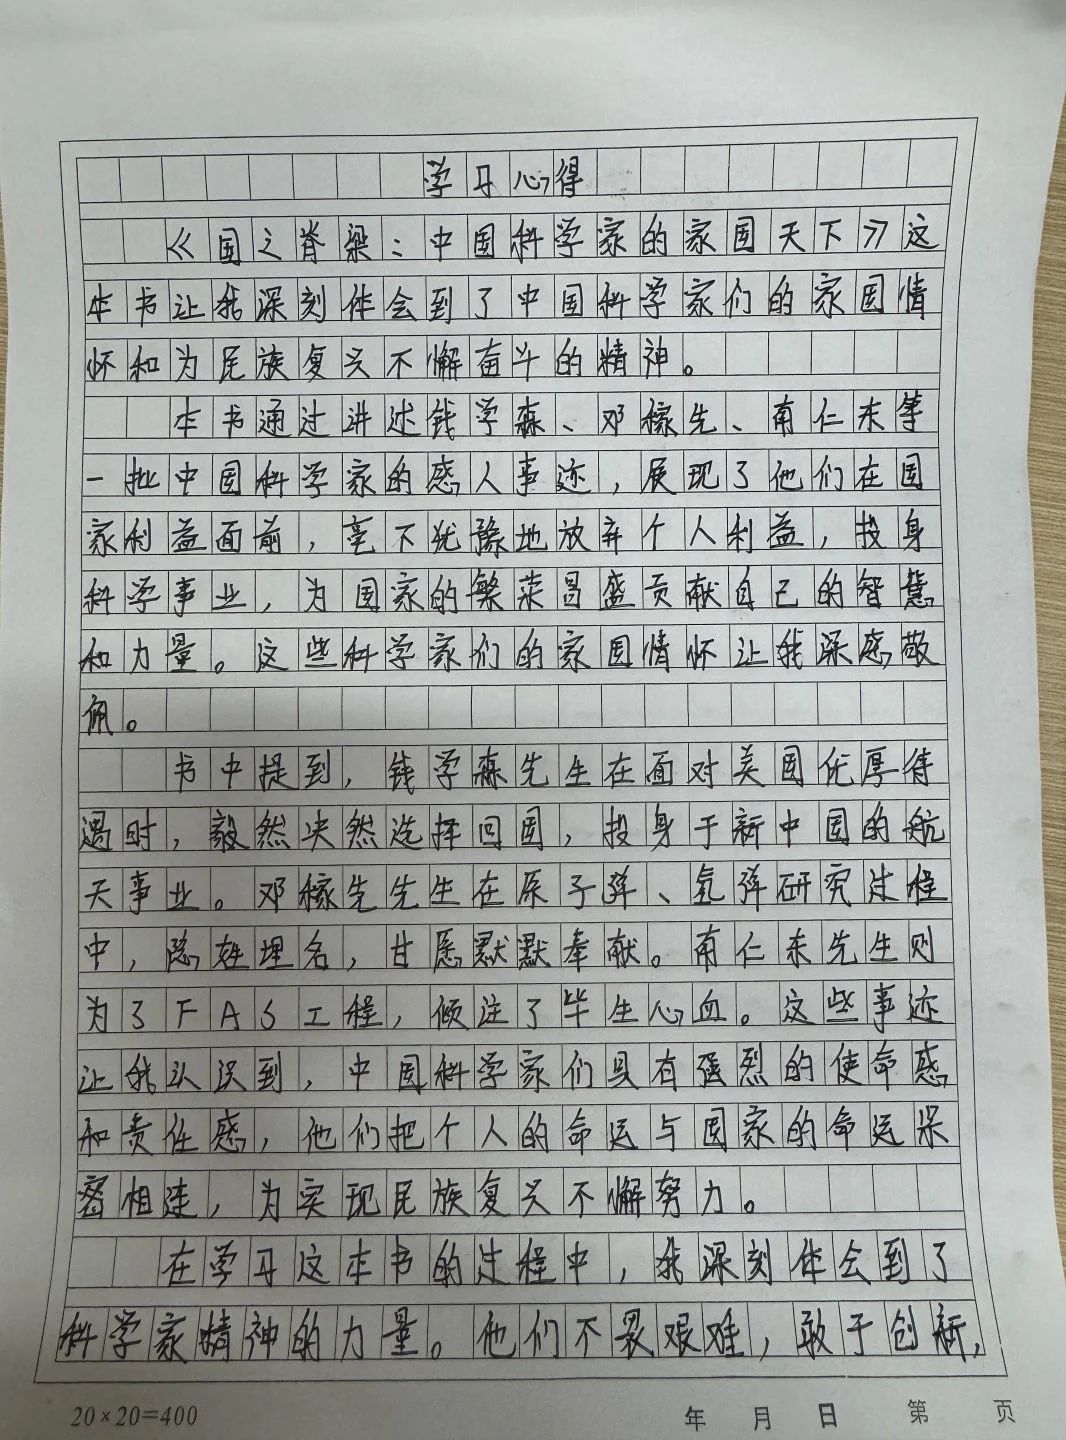 学习心得
《国之脊梁：中国科学家的家国天下》这
本书让我深刻体会到了中国科学家们的家国情
怀和为民族复兴不懈奋斗的精神。
本书通过讲述钱学森、邓稼先、南仁东等
一批中国科学家的感人事迹，展现了他们在国
家利益面前，毫不犹豫地放弃个人利益，投身
科学事业，为国家的繁荣昌盛贡献自己的智慧
和力量。这些科学家们的家国情怀让我深感敬
佩。
书中提到，钱学森先生在面对美国优厚待
遇时，毅然决然选择回国，投身于新中国的航
天事业。邓稼先先生在原子弹、氢弹研究过程
中，隐姓埋名，甘愿默默奉献。南仁东先生则
为了FAS工程，倾注了毕生心血。这些事迹
让我认识到，中国科学家们具有强烈的使命感
和责任感，他们把个人的命运与国家的命运紧
密相连，为实现民族复兴不懈努力。
在学习这本书的过程中，我深刻体会到了
科学家精神的力量。他们不畏艰难，敢于创新，
20×20=400 年 月 日 第 页